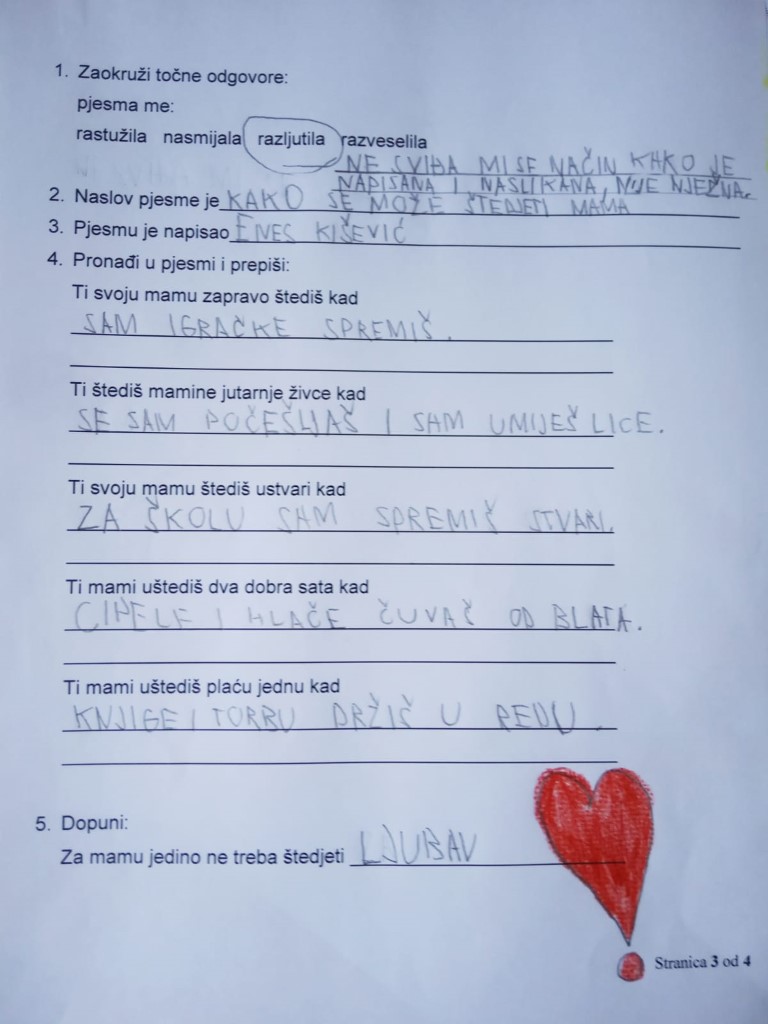 1. Zaokruži točne odgovore:
pjesma me:
rastužila nasmijala razljutila razveselila
NE SVIĐA MI SE NAČIN KAKO JE
NAPISANA I NASLIKANA, NIJE NJEŽNA.
2. Naslov pjesme je KAKO SE MOŽE ŠTEDJETI MAMA
3. Pjesmu je napisao ENES KIŠEVIĆ
4. Pronađi u pjesmi i prepiši:
Ti svoju mamu zapravo štediš kad
SAM IGRAČKE SPREMIŠ.
Ti štediš mamine jutarnje živce kad
SE SAM POČEŠLJAŠ I SAM UMIJEŠ LICE.
Ti svoju mamu štediš ustvari kad
ZA ŠKOLU SAM SPREMIŠ STVARI.
Ti mami uštediš dva dobra sata kad
CIPELE I HLAČE ČUVAŠ OD BLATA.
Ti mami uštediš plaću jednu kad
KNJIGE I TORBU DRŽIŠ U REDU.
5. Dopuni:
Za mamu jedino ne treba štedjeti LJUBAV
Stranica 3 od 4